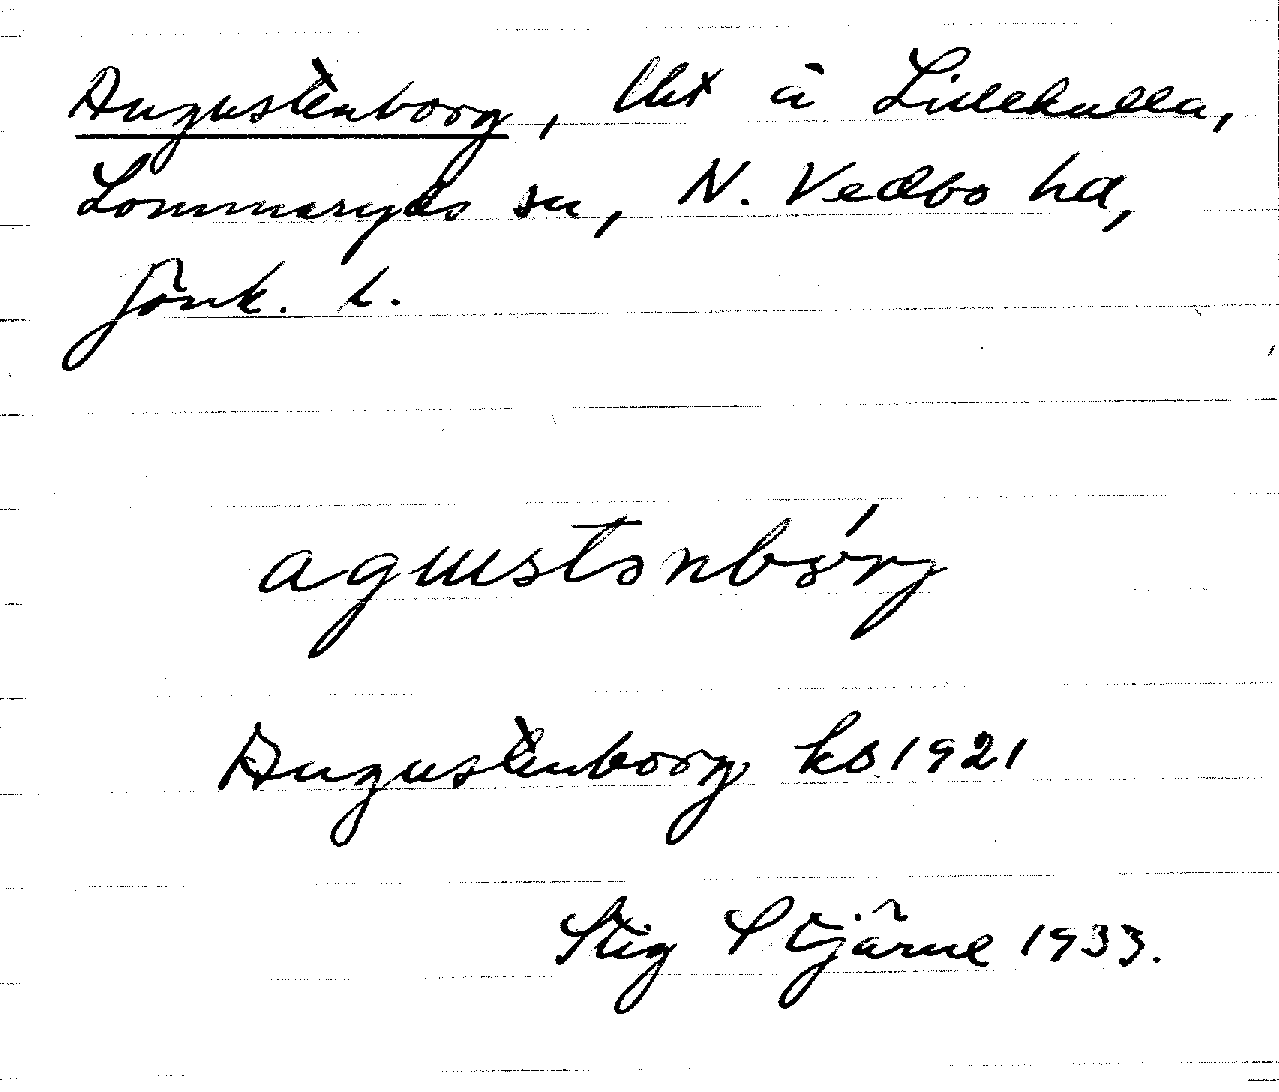 Augustenborg, lht å Lillekulla,
Lommaryds sn, N. Vedbo hd,
Jönk. l.
agustanbórg
Augustenborg kb 1921
Stig Stjärne 1933.